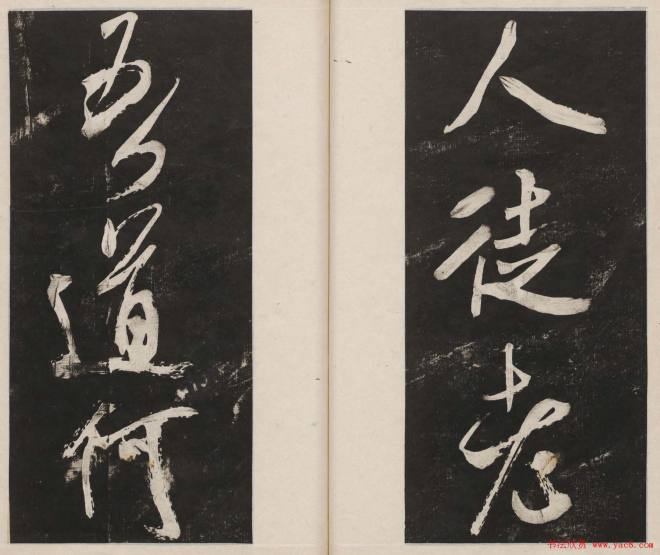 人徒老
吾道何
书法欣赏 www.yac8.com